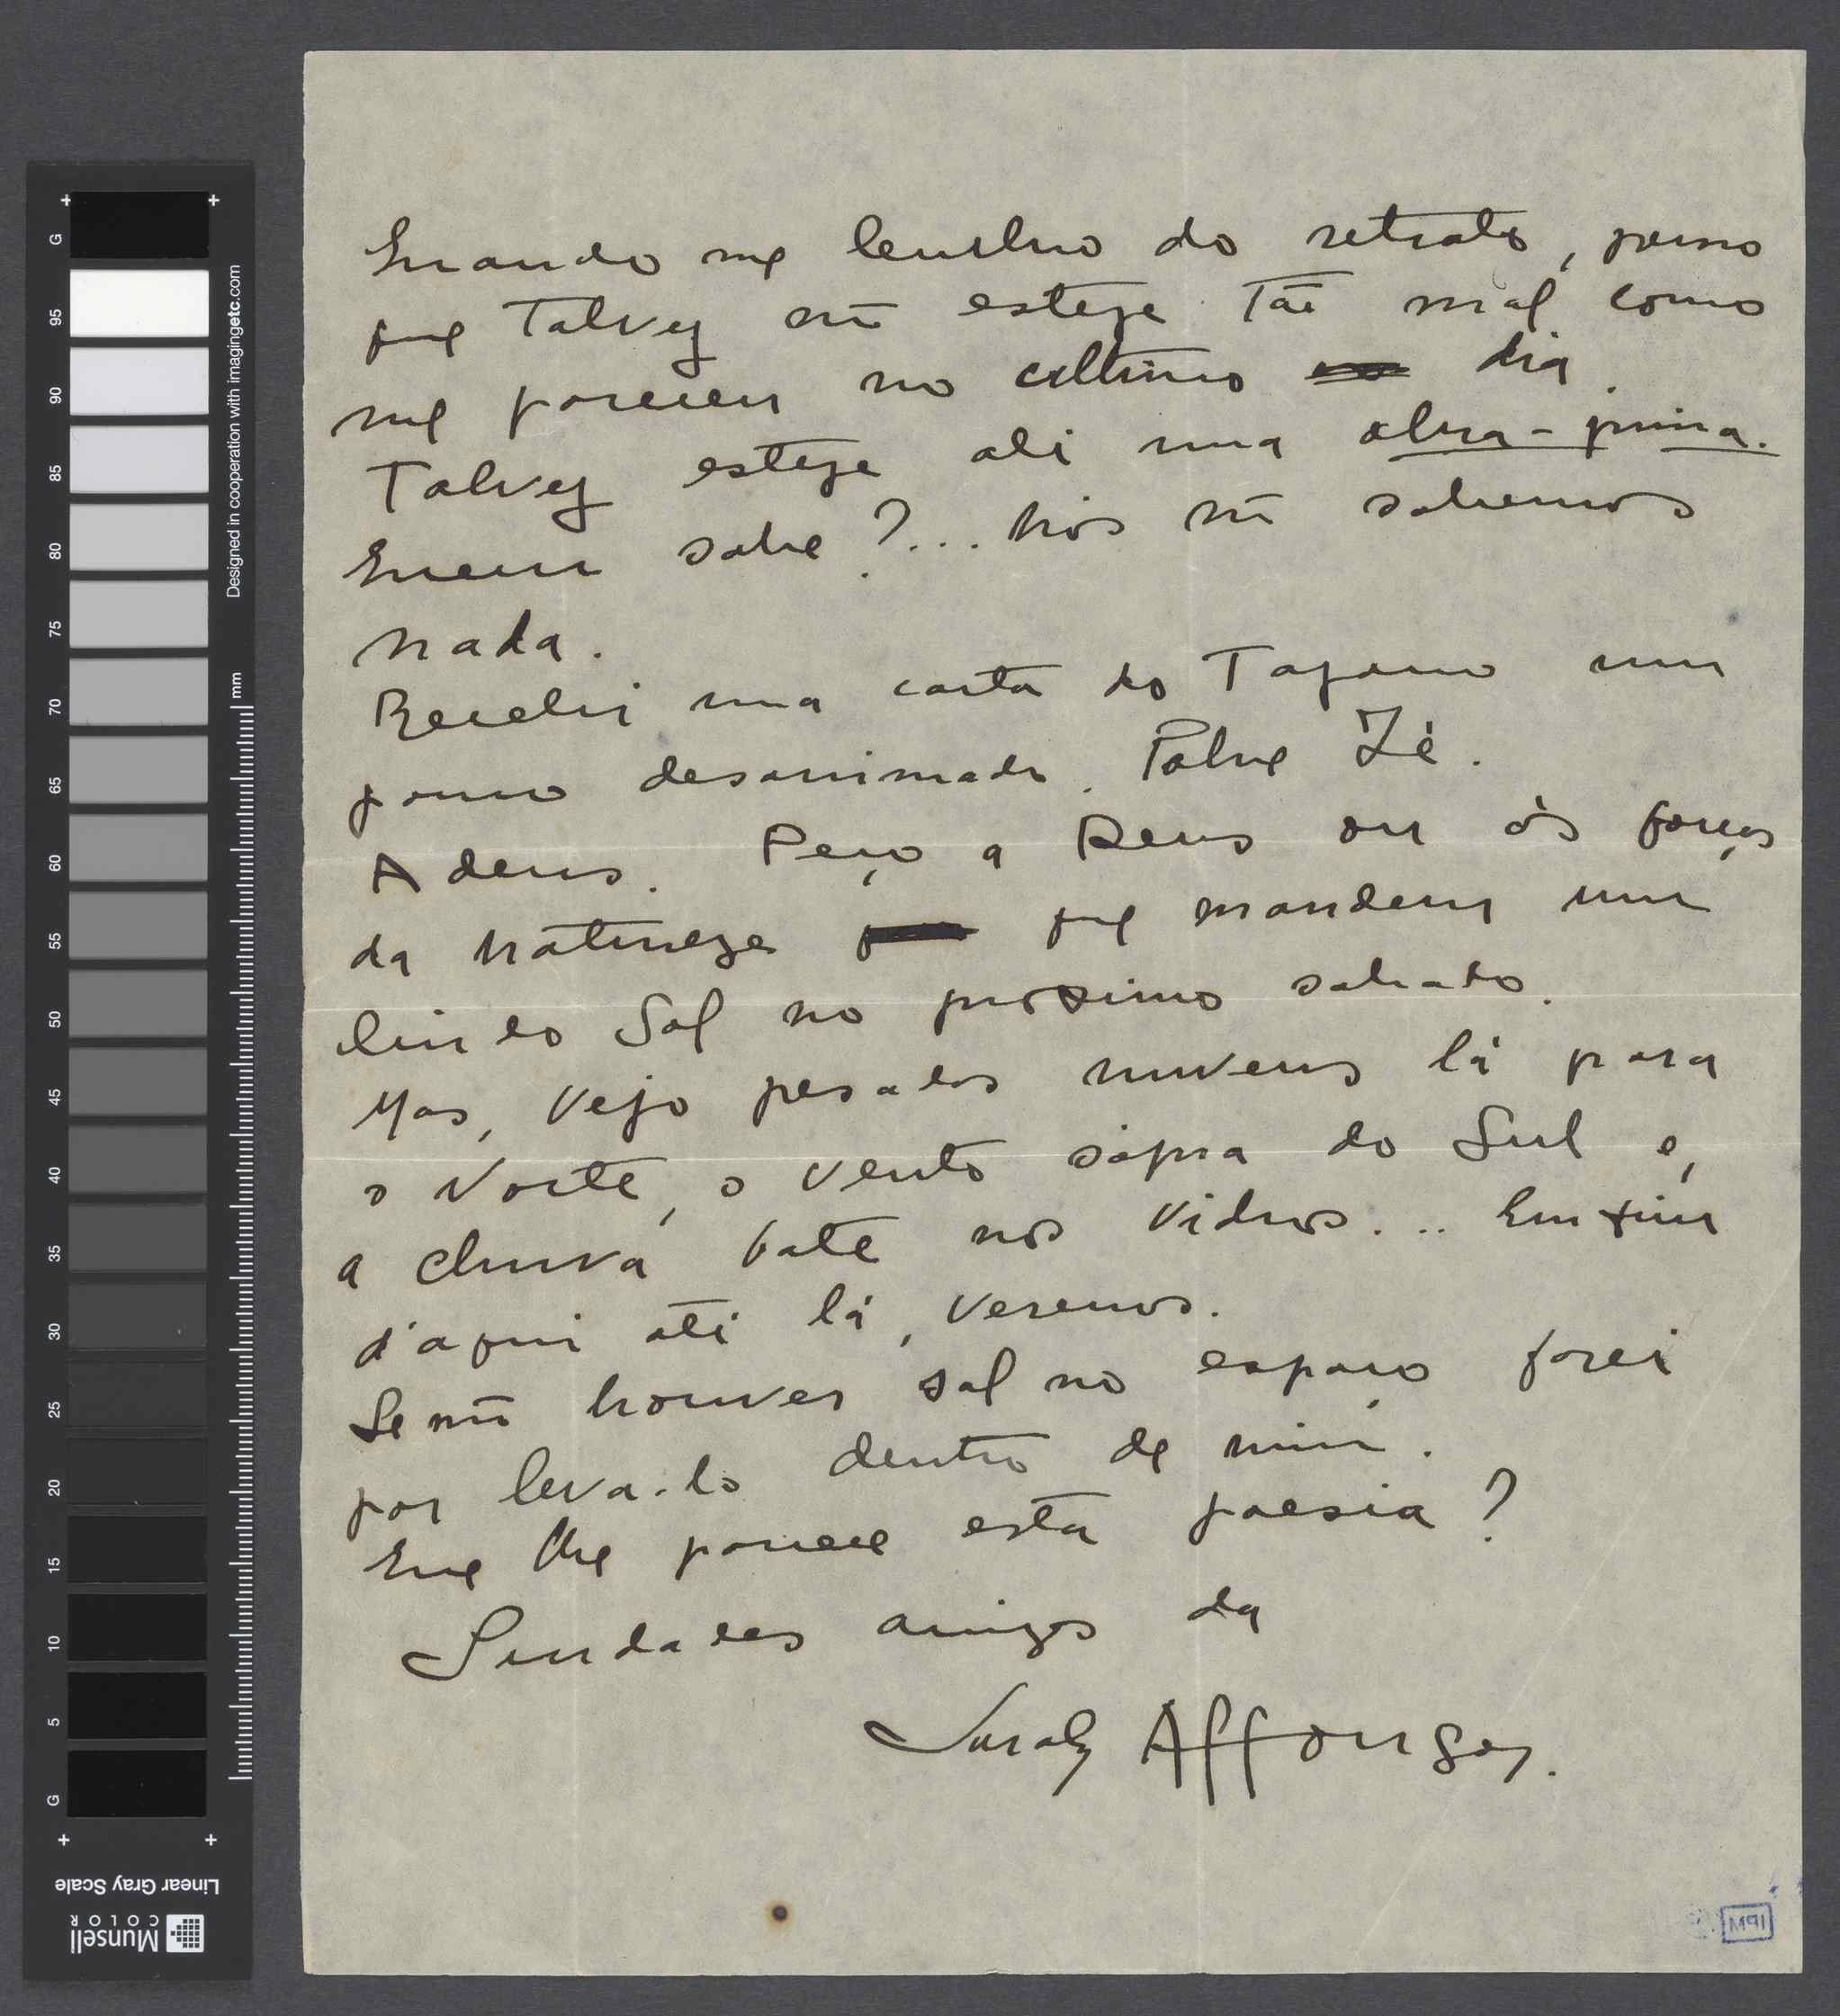 Quando me lembro do retrato, penso
que Talvez nũ esteja Tão mal como
me pareceu no ultimo dia.
Talvez esteja ali uma obra-prima.
Quem sabe?... Nós nũ sabemos
nada.
Recebi uma carta do Tagarro um
pouco desanimada. Pobre Zé.
Adeus. Peço a Deus ou ás forças
da natureza que mandem um
lindo Sol no proximo sabado.
Mas, vejo pesadas nuvens lá para
o Norte, o vento sópra do Sul e,
a chuva bate nos vidros... Emfim
d'aqui até lá, veremos.
Se nũ houver sol no espaço farei
por leva-lo dentro de mim.
Que lhe parece esta poesia?
Saudades amigas da
Sarah Affonso.
G 95 90 85 80 75 70 65 60 55 50 45 40 35 30 25 20 15 10 5 G
mm
Designed in cooperation with imagingetc.com
Linear Gray Scale
Munsell
COLOR